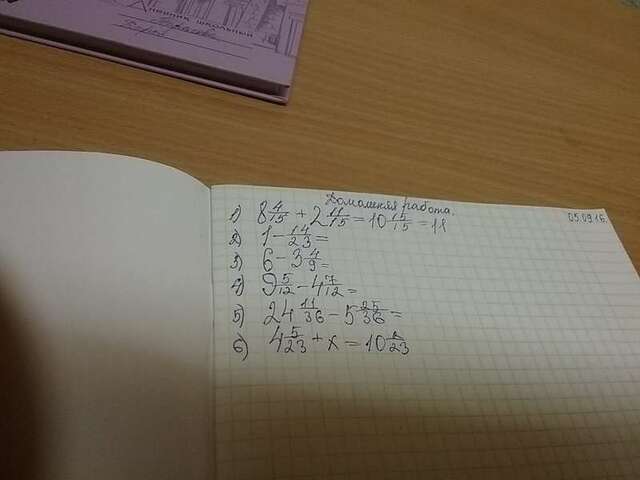 Дневник школьный
Домашняя работа.
05.09.16
1) 8 4/15 + 2 11/15 = 10 15/15 = 11
2) 1 - 14/23 =
3) 6 - 3 4/9 =
4) 9 5/12 - 4 7/12 =
5) 24 11/36 - 5 25/36 =
6) 4 5/23 + x = 10 2/23